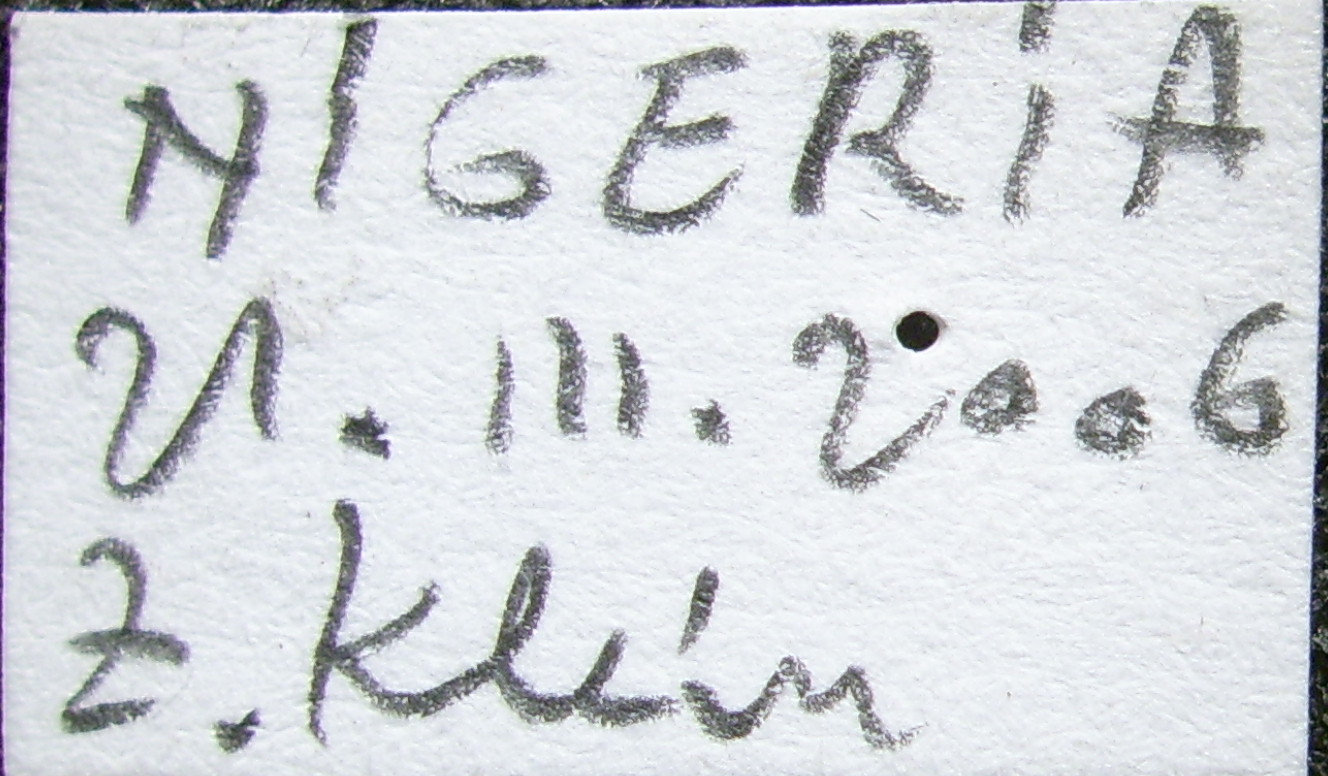 NIGERIA
21.III.2006
Z.Klein